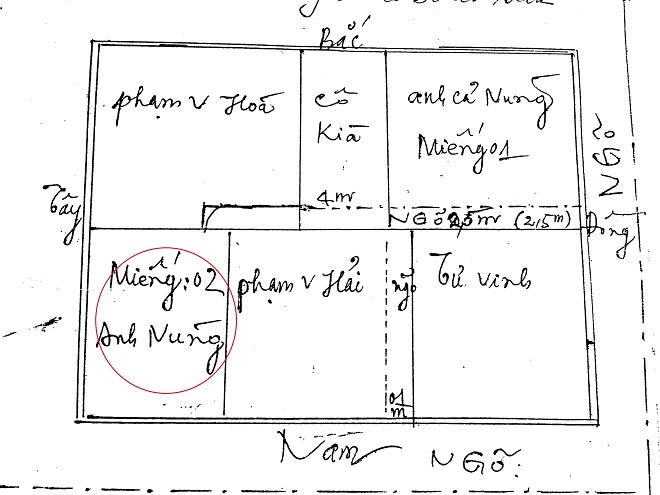 Bắc
phạm V Hoà
cô
Kiā
anh cả Nùng
Miếng 01
NGÕ
Tây
4m
NGÕ 2,5m (2,5m)
Đông
Miếng: 02
Anh Nùng
phạm V Hải
ngõ
Tư Vinh
01
m
Nam
NGÕ: